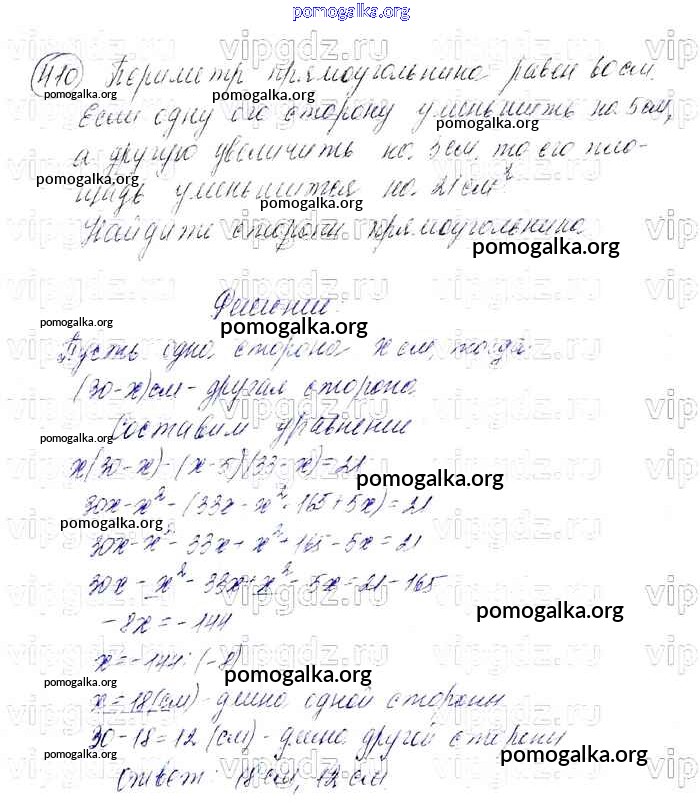 pomogalka.org
410 Периметр прямоугольника равен 60 см.
Если одну его сторону уменьшить на 5 см,
а другую увеличить на 3 см, то его пло-
щадь уменьшится на 21 см²
Найдите стороны прямоугольника.
Решение.
Пусть одна сторона x см, тогда
(30-x)см - другая сторона
Составим уравнение
x(30-x)-(x-5)(33-x)=21
30x-x²-(33x-x²-165+5x)=21
30x-x²-33x+x²+165-5x=21
30x-x²-33x+x²-5x=21-165
-8x=-144
x=-144:(-8)
x=18(см)-длина одной стороны
30-18=12 (см)-длина другой стороны
Ответ: 18см, 12 см